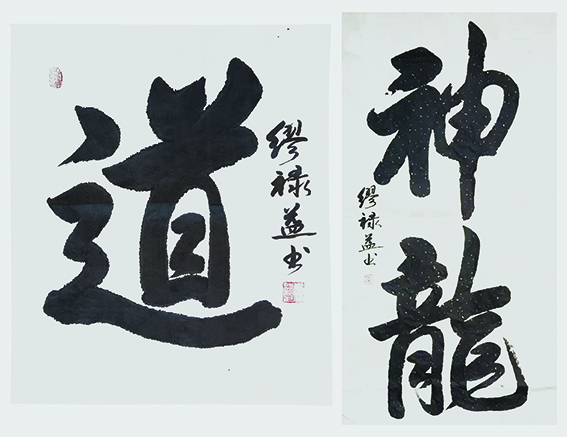 道
繆禄益书
神龍
繆禄益书